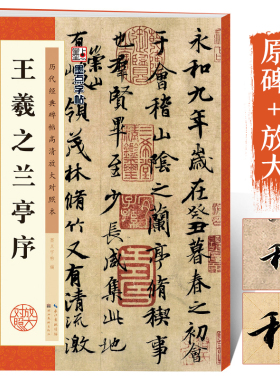 原碑+放大
墨点字帖
永和九年歲在癸丑暮春之初會
于會稽山陰之蘭亭脩稧事
也羣賢畢至少長咸集此地
有崇山峻領茂林脩竹又有
历代经典碑帖高清放大对照本
王羲之兰亭序
放大
对照